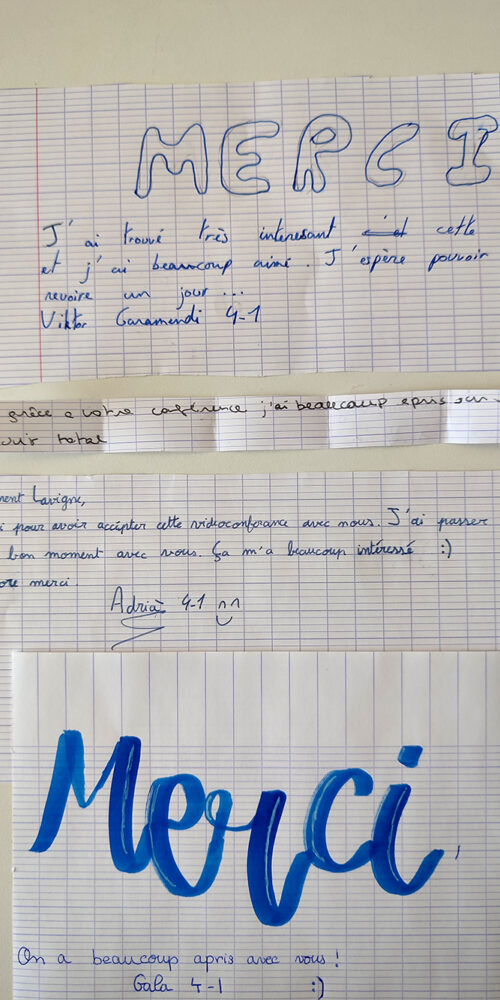 MERCI
J'ai trouvé très interessant cette
et j'ai beaucoup aimé. J'espère pouvoir
revoire un jour...
Viktor Garamendi 4-1
grâce a votre conférence j'ai beaucoup apris sur
total
ment Lavigne,
i pour avoir accépter cette vidéoconférance avec nous. J'ai passer
bon moment avec vous. Ça m'a beaucoup intéressé :)
ore merci.
Adrià 4-1
Merci
On a beaucoup apris avec vous !
Gala 4-1 :)